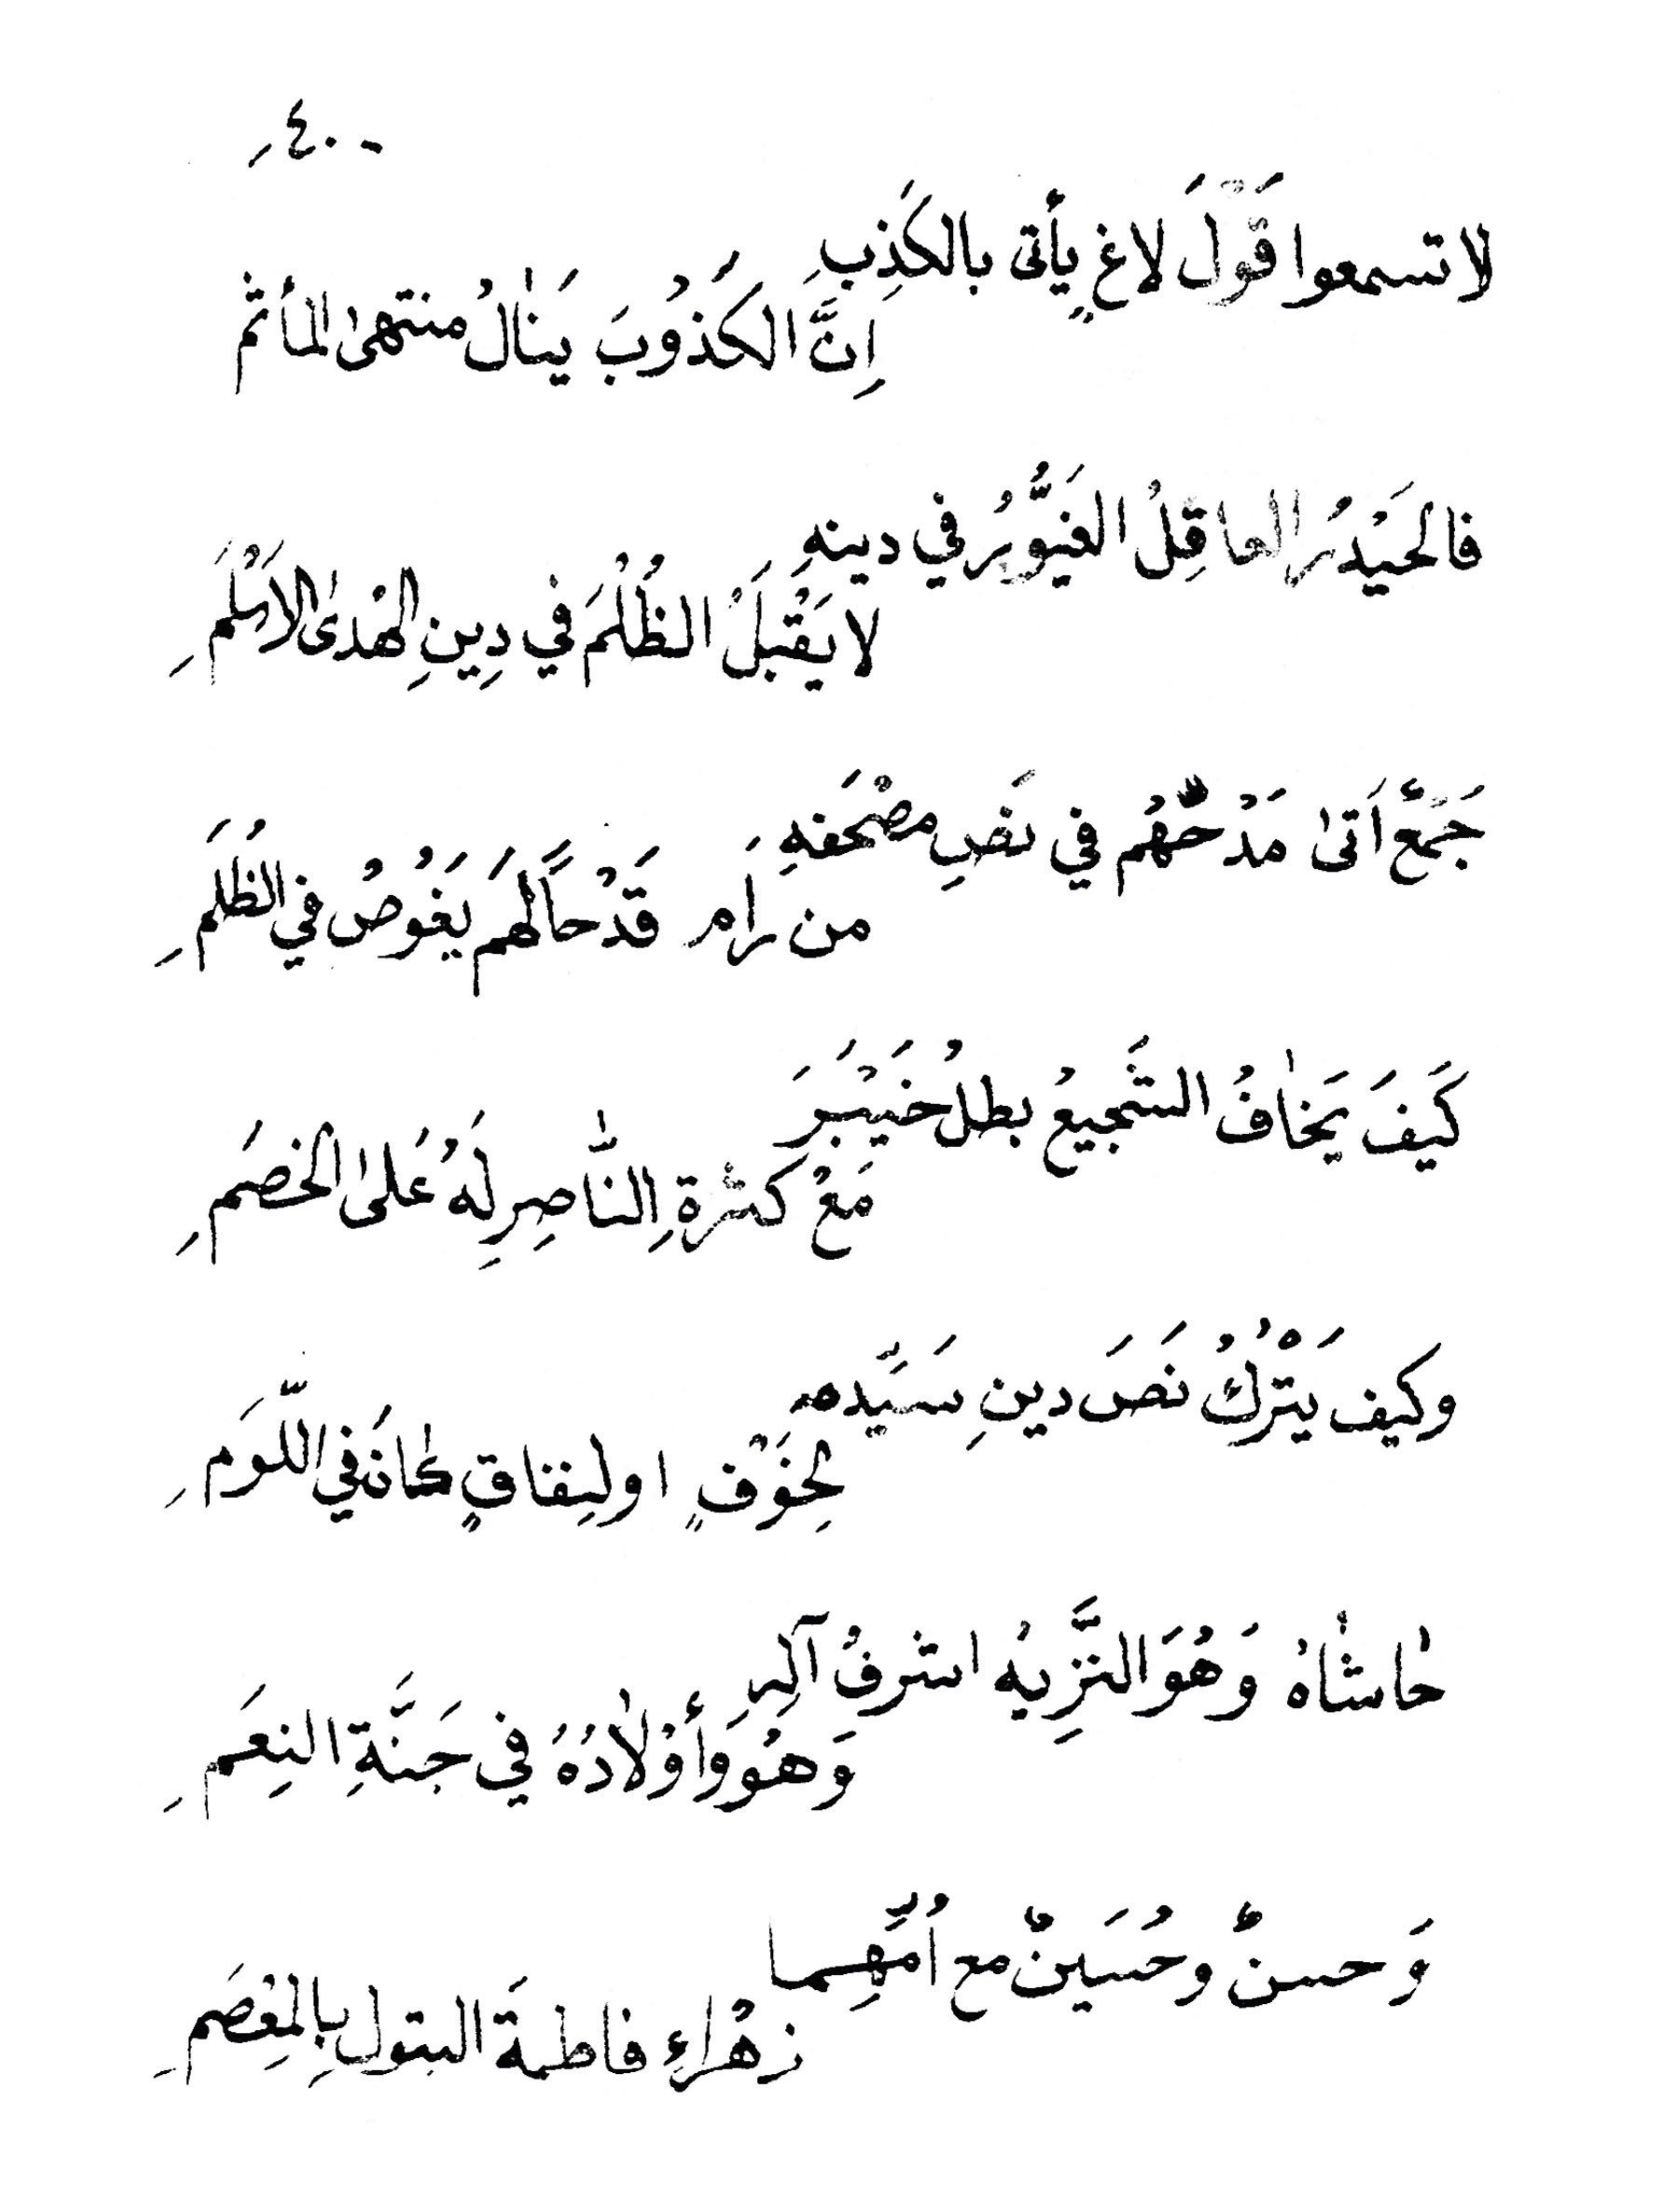 - ٤٠
لا تسمعوا قَوْلَ لاغٍ يأتى بالكَذِبِ
اِنَّ الكَذُوْبَ يَنٰالُ منتهىٰ المأثم
فالحَيْدَرُ العاقِلُ الغَيُّوْرُ في دينهِ
لا يَقْبَلُ الظُلْمَ في دِينِ الهُدىٰ الاَسْلَمِ
جَمْعٌ اَتىٰ مَدْحُهُم في نَصِ مصْحَفهِ
من رَام قَدْحاً لَهُم يَغُوصُ في الظُلَمِ
كَيفَ يَخٰافُ الشَجيعُ بطلُ خَيْبَرَ
مَعْ كثرةِ النّٰاصِرِ لَهُ عَلىٰ الخصَمِ
وكيف يَتْرُكُ نَصَ دينِ سَيَّده
لِخَوْفٍ او لِنِفاقٍ كٰانَ في اللّوَمِ
حٰاشٰاهُ وَهُوَ النَّزِيهُ اشرفُ آلِهِ
وَهُوَ وَأَوْلٰادُهُ في جَنَّةِ النِعَمِ
وَحسنٌ وحُسَينٌ مع اُمِّهِما
زهْراءِ فاطمةَ البتولِ بِالمِعْصَمِ